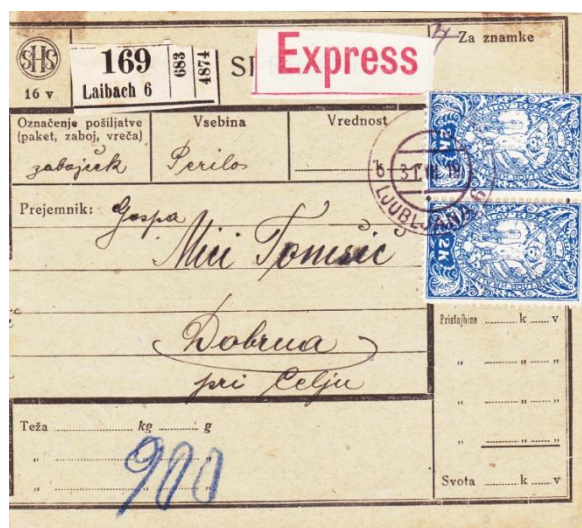 SHS
16 v
169
Laibach 6
683
4874
Express
Za znamke
Označenje pošiljatve
(paket, zaboj, vreča)
Vsebina
Vrednost
zabojček
Perilo
2K
6 31 VII 19
LJUBLJANA 6
Prejemnik: Gospa
Mici Tomsić
2K
Dobrna
pri Celju
Pristojbine k v
" " "
" " "
" " "
Teža kg g
900
Svota k v